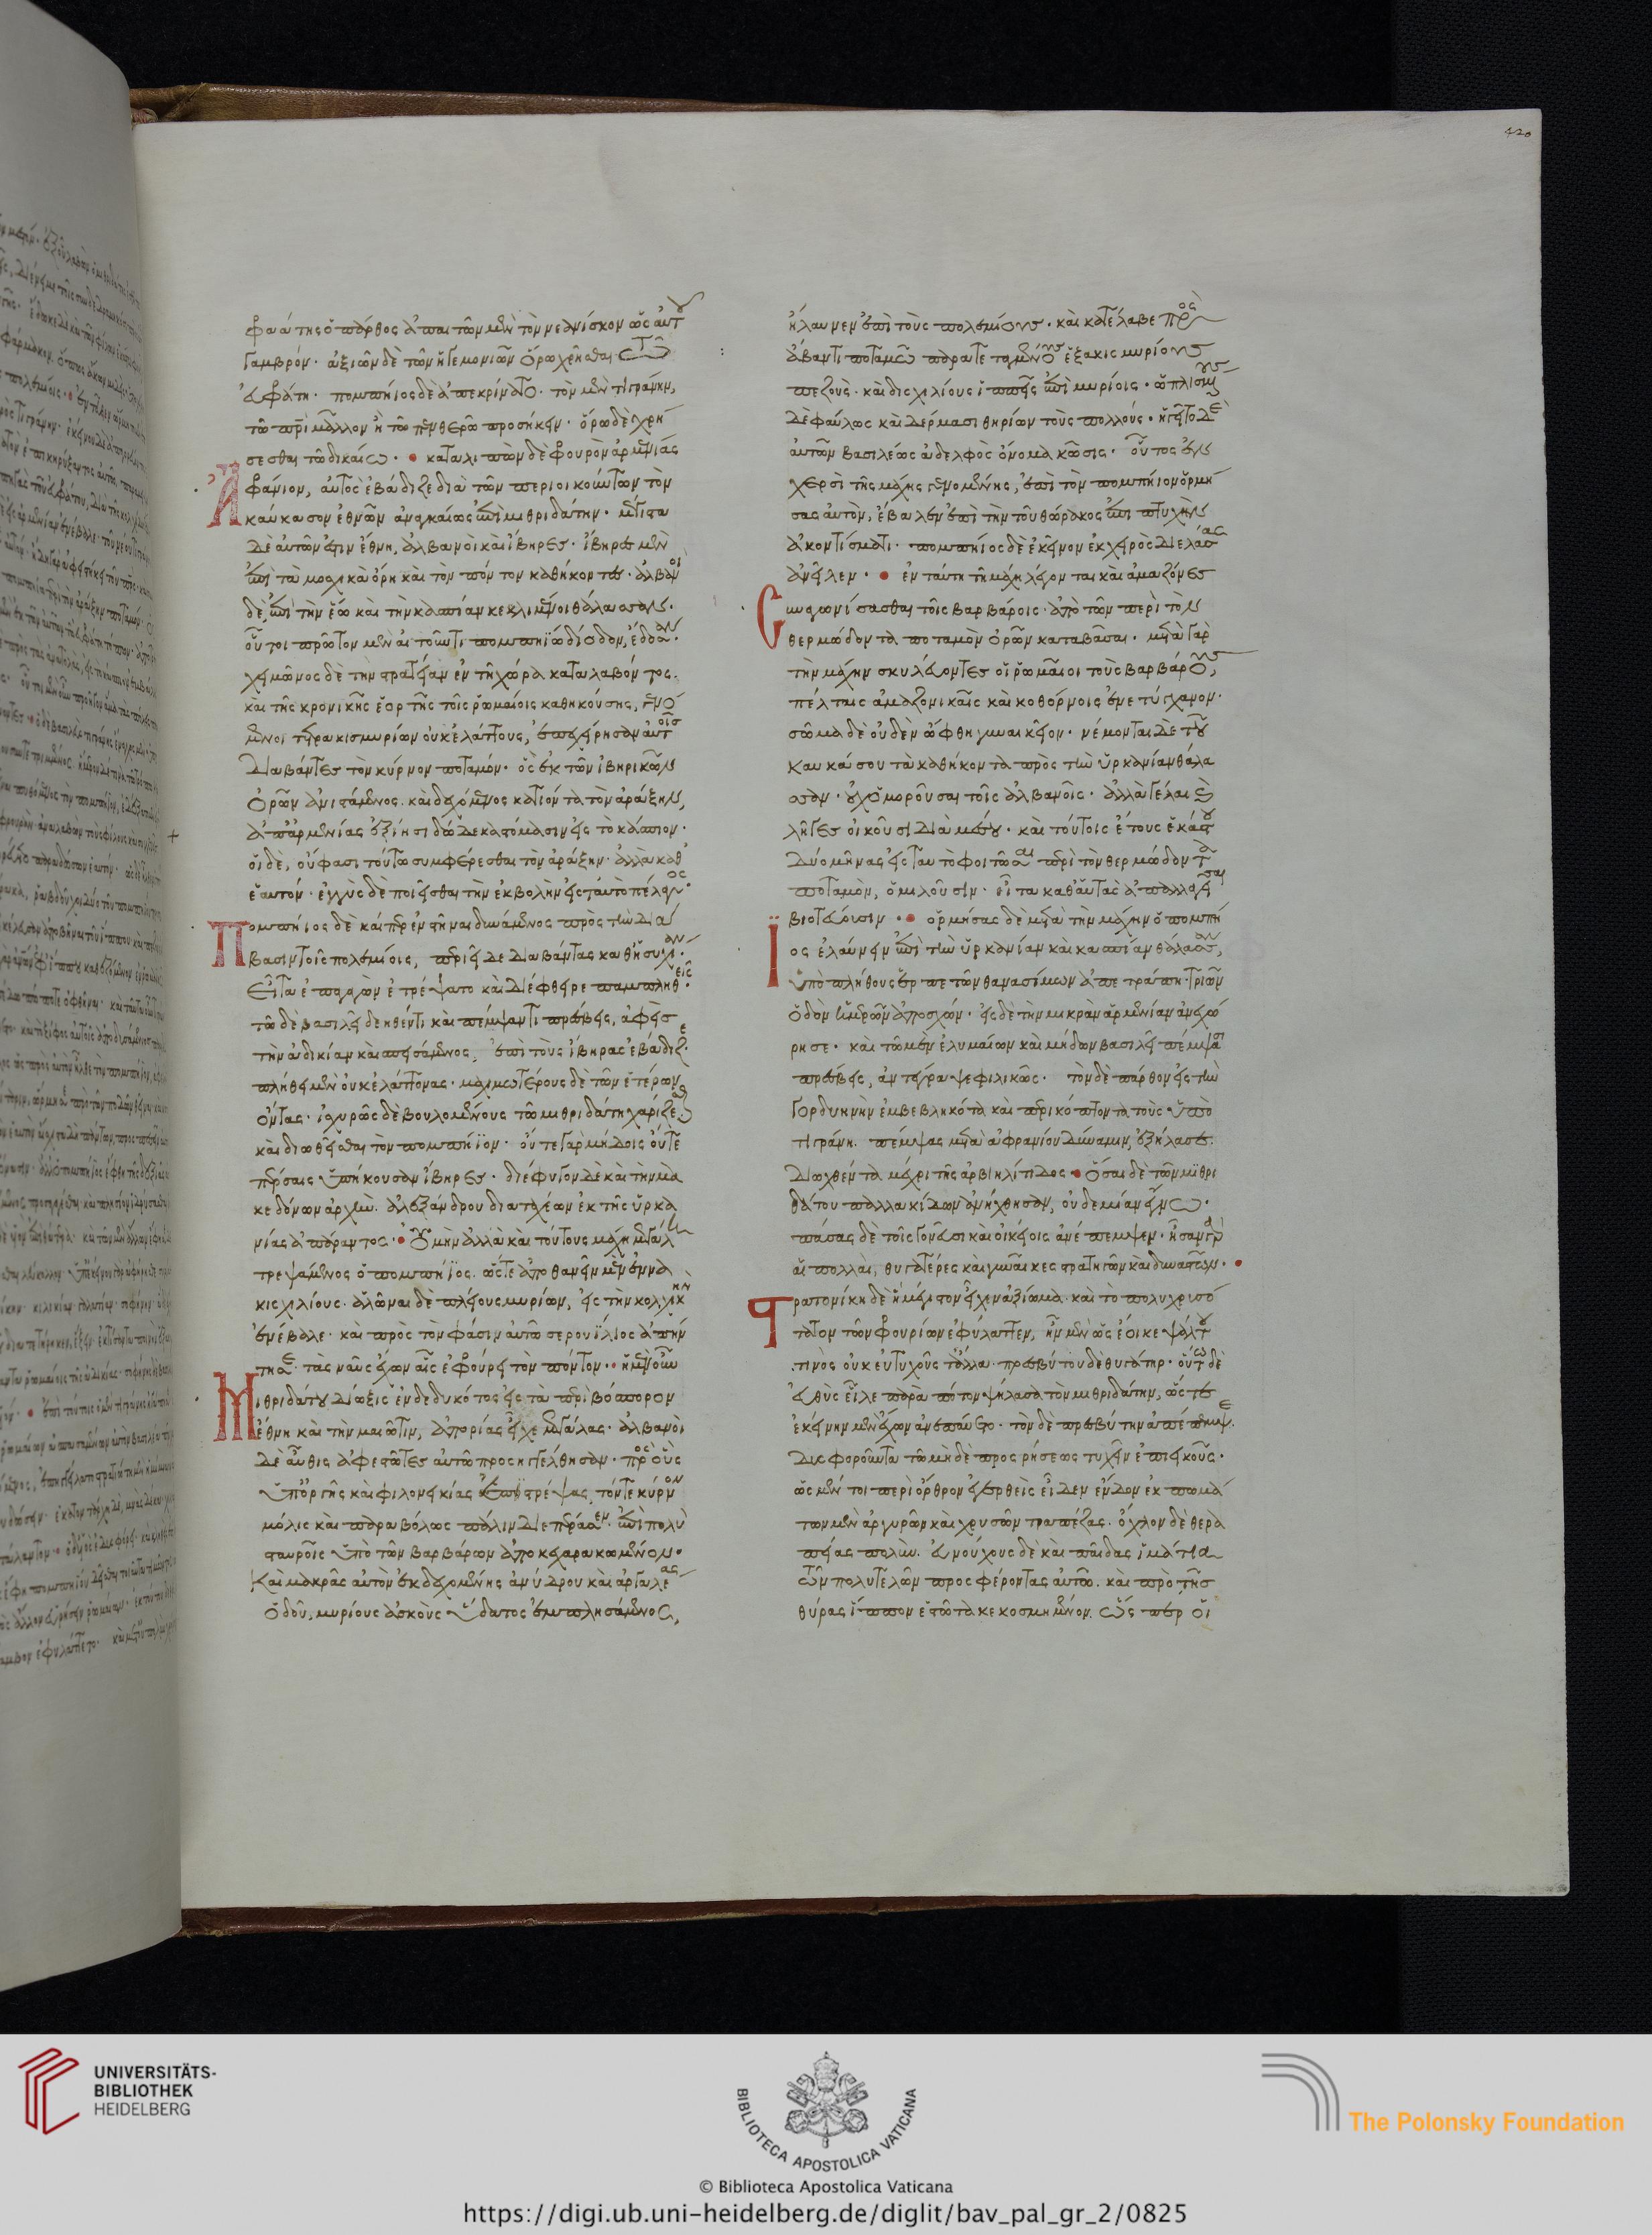 420
φραάτης ὁ πάρθος ἀπαιτῶν μὲν τὸν νεανίσκον ὡς αὐτοῦ
γαμβρόν· ἀξιῶν δὲ τῶν ἡγεμονιῶν ὅρω χρῆσθαι τῶ
εὐφράτη· πομπήιος δὲ ἀπεκρίνατο· τὸν μὲν τιγράνην,
τῶ πατρὶ μᾶλλον ἢ τῶ πενθερῶ προσήκειν· ὅρω δὲ χρή
σεσθαι τῶ δικαίω· καταλιπὼν δὲ φρουρὸν ἀρμενίας
ἀφράνιον, αὐτὸς ἐβάδιζε διὰ τῶν περιοικούντων τὸν
καύκασον ἐθνῶν ἀναγκαίως ἐπὶ μιθριδάτην· μέγιστα
δὲ αὐτῶν ἐστιν ἔθνη, ἀλβανοὶ καὶ ἴβηρες· ἴβηρες μὲν
ἐπὶ τὰ μοσχικὰ ὄρη καὶ τὸν πόντον καθήκοντες· ἀλβανοὶ
δὲ, ἐπὶ τὴν ἕω καὶ τὴν κασπίαν κεκλιμένοι θάλασσαν·
οὗτοι πρῶτον μὲν αἰτοῦντι πομπηίω δίοδον, ἔδοσαν·
χειμῶνος δὲ τὴν στρατείαν ἐν τῆ χώρα καταλαβόντος·
καὶ τῆς κρονικῆς ἑορτῆς τοῖς ῥωμαίοις καθηκούσης, γενό
μενοι τετρακισμυρίων οὐκ ἐλάττους, ἐπεχείρησαν αὐτοῖς
διαβάντες τὸν κύρνον ποταμόν· ὃς ἐκ τῶν ἰβηρικῶν
ὀρῶν ἀνιστάμενος· καὶ δεχόμενος κατιόντα τὸν ἀράξην,
ἀπ' ἀρμενίας ἐξίησι δώδεκα στόμασιν εἰς τὸ κάσπιον·
οἱ δὲ, οὔ φασι τούτω συμφέρεσθαι τὸν ἀράξην· ἀλλὰ καθ'
ἑαυτόν· ἐγγὺς δὲ ποιεῖσθαι τὴν ἐκβολὴν εἰς ταὐτὸ πέλαγος·
πομπήιος δὲ καίπερ ἐνστῆναι δυνάμενος πρὸς τὴν διά
βασιν τοῖς πολεμίοις, περιεῖδε διαβάντας καθ' ἡσυχίαν·
εἶτα ἐπαγαγὼν ἐτρέψατο καὶ διέφθειρε παμπληθεῖς·
τῶ δὲ βασιλεῖ δεηθέντι καὶ πέμψαντι πρέσβεις, ἀφεὶς
τὴν ἀδικίαν καὶ σπεισάμενος, ἐπὶ τοὺς ἴβηρας ἐβάδιζε·
πλήθει μὲν οὐκ ἐλάττονας· μαχιμωτέρους δὲ τῶν ἑτέρων
ὄντας· ἰσχυρῶς δὲ βουλομένους τῶ μιθριδάτη χαρίζεσθαι
καὶ διωθεῖσθαι τὸν πομπήϊον· οὔτε γὰρ μήδοις οὔτε
πέρσαις ὑπήκουσαν ἴβηρες· διέφυγον δὲ καὶ τὴν μα
κεδόνων ἀρχὴν· ἀλεξάνδρου διαταχέων ἐκ τῆς ὑρκα
νίας ἀπάραντος· οὐ μὴν ἀλλὰ καὶ τούτους μάχη μεγάλη
τρεψάμενος ὁ πομπήϊος· ὥστε ἀποθανεῖν μὲν ἐννα
κισχιλίους· ἁλῶναι δὲ πλείους μυρίων, εἰς τὴν κολχικὴν
ἐνέβαλε· καὶ πρὸς τὸν φᾶσιν αὐτῶ σερουΐλιος ἀπήν
τησε· τὰς ναῦς ἔχων αἷς ἐφρούρει τὸν πόντον· ἡ μὲν οὖν
μιθριδάτου δίωξις ἐνδεδυκότος εἰς τὰ περὶ βόσπορον
ἔθνη καὶ τὴν μαιῶτιν, ἀπορίας εἶχε μεγάλας· ἀλβανοὶ
δὲ αὖθις ἀφεστῶτες αὐτῶ προσηγγέλθησαν· πρὸς οὓς
ὑπ' ὀργῆς καὶ φιλονεικίας ἐπιστρέψας, τόν τε κύρνον
μόλις καὶ παραβόλως πάλιν διεπέρασεν· ἐπὶ πολὺ
σταυροῖς ὑπὸ τῶν βαρβάρων ἀποκεχαρακωμένον·
καὶ μακρᾶς αὐτὸν ἐκδεχομένης ἀνύδρου καὶ ἀργαλέας
ὁδοῦ, μυρίους ἀσκοὺς ὕδατος ἐμπλησάμενος,
ἤλαυνεν ἐπὶ τοὺς πολεμίους· καὶ κατέλαβε πρὸς
ἄβαντι ποταμῶ παρατεταγμένους ἑξακισμυρίους
πεζοὺς· καὶ δισχιλίους ἱππεῖς ἐπὶ μυρίοις· ὡπλισμένους
δὲ φαύλως καὶ δέρμασι θηρίων τοὺς πολλούς· ἡγεῖτο δὲ
αὐτῶν βασιλέως ἀδελφὸς ὄνομα κῶσις· οὗτος ἐν
χερσὶ τῆς μάχης γενομένης, ἐπὶ τὸν πομπήιον ὁρμή
σας αὐτὸν, ἔβαλεν ἐπὶ τὴν τοῦ θώρακος ἐπιπτυχὴν
ἀκοντίσματι· πομπήιος δὲ ἐκεῖνον ἐκ χειρὸς διελάσας
ἀνεῖλεν· ἐν ταύτη τῆ μάχη λέγονται καὶ ἀμαζόνες
συναγωνίσασθαι τοῖς βαρβάροις· ἀπὸ τῶν περὶ τὸν
θερμώδοντα ποταμὸν ὀρῶν καταβᾶσαι· μετὰ γὰρ
τὴν μάχην σκυλεύοντες οἱ ῥωμαῖοι τοὺς βαρβάρους,
πέλταις ἀμαζονικαῖς καὶ κοθόρνοις ἐνετύγχανον·
σῶμα δὲ οὐδὲν ὤφθη γυναικεῖον· νέμονται δὲ τοῦ
καυκάσου τὰ καθήκοντα πρὸς τὴν ὑρκανίαν θάλα
σσαν· οὐχ ὁμοροῦσαι τοῖς ἀλβανοῖς· ἀλλὰ γέλαι καὶ
λῆγες οἰκοῦσι διὰ μέσου· καὶ τούτοις ἔτους ἑκάστου
δύο μῆνας εἰς ταυτὸ φοιτῶσαι περὶ τὸν θερμώδοντα
ποταμὸν, ὁμιλοῦσιν· εἶτα καθ' αὑτὰς ἀπαλλαγεῖσαι
βιοτεύουσιν· ὁρμήσας δὲ μετὰ τὴν μάχην ὁ πομπή
ϊος ἐλαύνειν ἐπὶ τὴν ὑρκανίαν καὶ κασπίαν θάλασσαν,
ὑπὸ πλήθους ἑρπετῶν θανασίμων ἀπετράπη· τριῶν
ὁδὸν ἡμερῶν ἀποσχών· εἰς δὲ τὴν μικρὰν ἀρμενίαν ἀνεχώ
ρησε· καὶ τῶ μὲν ἐλυμαίων καὶ μήδων βασιλεῖ πέμψασι
πρέσβεις, ἀντέγραψε φιλικῶς· τὸν δὲ πάρθον εἰς τὴν
γορδυηνὴν ἐμβεβληκότα καὶ περικόπτοντα τοὺς ὑπὸ
τιγράνη· πέμψας μετὰ ἀφρανίου δύναμιν, ἐξήλασε·
διωχθέντα μέχρι τῆς ἀρβηλίτιδος· ὅσαι δὲ τῶν μιθρι
δάτου παλλακίδων ἀνήχθησαν, οὐδεμίαν ἔγνω·
πάσας δὲ τοῖς γονεῦσι καὶ οἰκείοις ἀνέπεμψεν· ἦσαν γὰρ
αἱ πολλαὶ, θυγατέρες καὶ γυναῖκες στρατηγῶν καὶ δυναστῶν·
στρατονίκη δὲ ἣ μέγιστον εἶχεν ἀξίωμα· καὶ τὸ πολυχρυσό
τατον τῶν φρουρίων ἐφύλαττεν, ἦν μὲν ὡς ἔοικε ψάλτου
τινὸς οὐκ εὐτυχοῦς τἆλλα· πρεσβύτου δὲ θυγάτηρ· οὕτω δὲ
εὐθὺς εἷλε παρὰ πότον ψήλασα τὸν μιθριδάτην, ὥστε
ἐκείνην μὲν ἔχων ἀνεπαύετο· τὸν δὲ πρεσβύτην ἀπέπεμψε·
δυσφοροῦντα τῶ μηδὲ προσρήσεως τυχεῖν ἐπιεικοῦς·
ὡς μέντοι περὶ ὄρθρον ἐγερθεὶς εἶδεν ἔνδον ἐκπωμά
των μὲν ἀργυρῶν καὶ χρυσῶν τραπέζας· ὄχλον δὲ θερα
πείας πολὺν· εὐνούχους δὲ καὶ παῖδας ἱμάτια
τῶν πολυτελῶν προσφέροντας αὐτῶ· καὶ πρὸ τῆς
θύρας ἵππον ἑστῶτα κεκοσμημένον· ὥσπερ οἱ
UNIVERSITÄTS-
BIBLIOTHEK
HEIDELBERG
BIBLIOTECA APOSTOLICA VATICANA
The Polonsky Foundation
© Biblioteca Apostolica Vaticana
https://digi.ub.uni-heidelberg.de/diglit/bav_pal_gr_2/0825